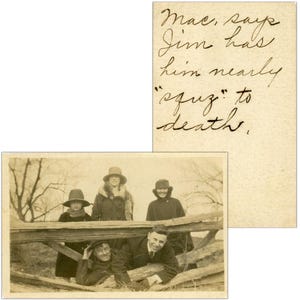 Mac. says
Jim has
him nearly
"squz" to
death.